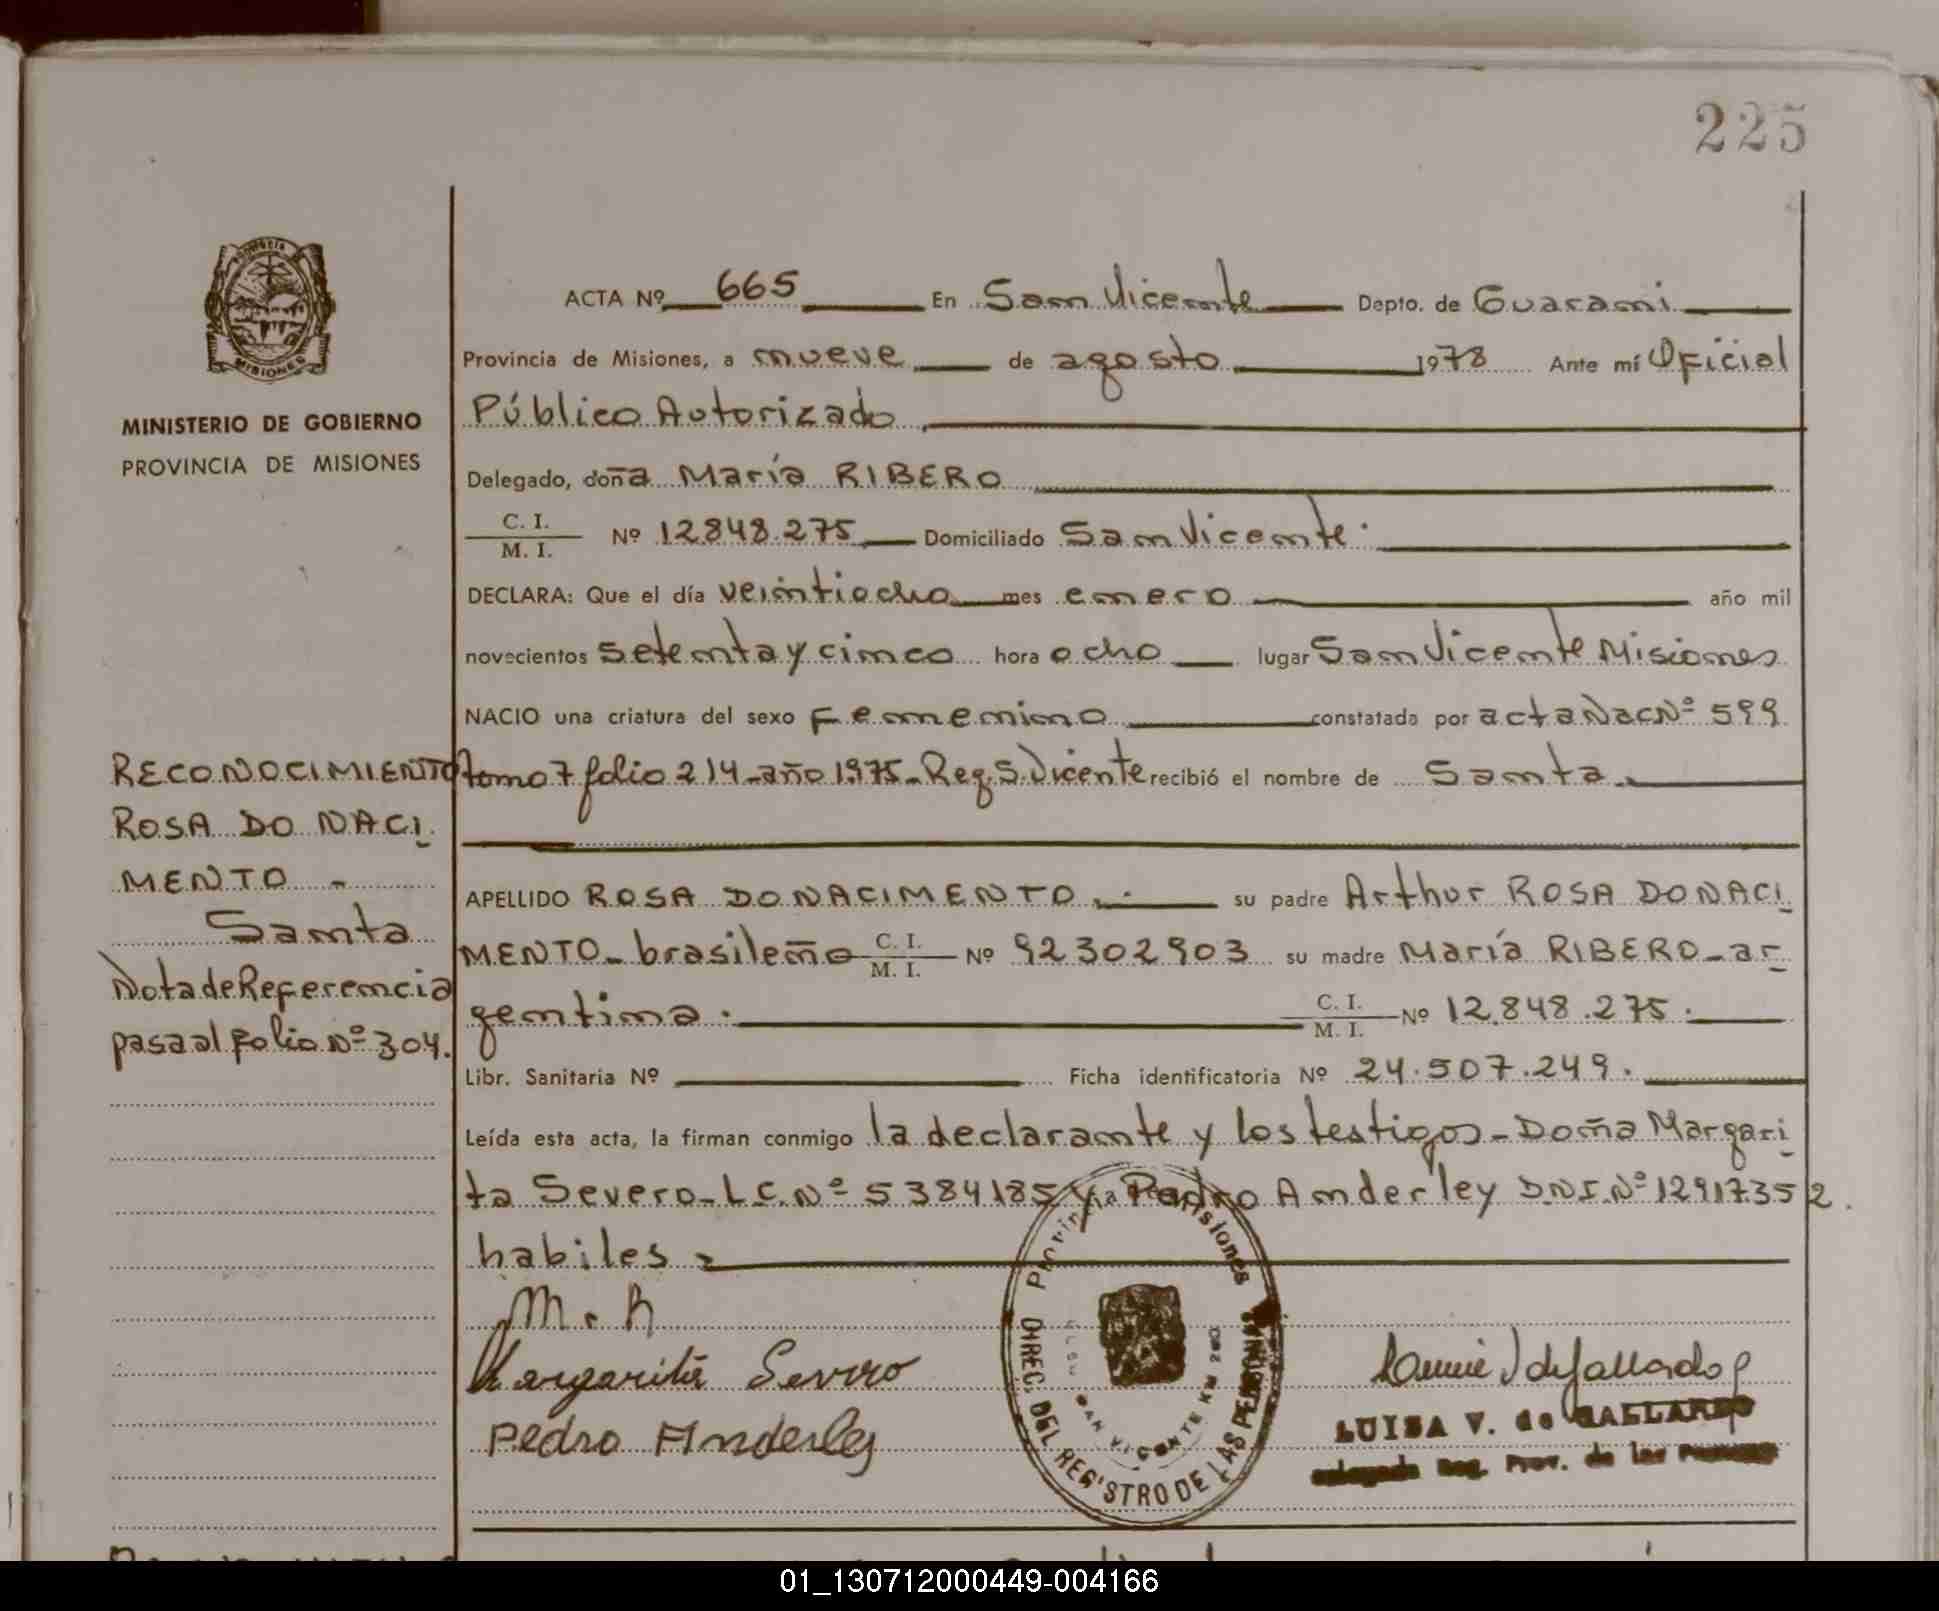 225
PROVINCIA
MISIONES
MINISTERIO DE GOBIERNO
PROVINCIA DE MISIONES
ACTA Nº 665 En San Vicente Depto. de Guaraní
Provincia de Misiones, a nueve de agosto 1978 Ante mí Oficial
Público Autorizado
Delegado, doña María RIBERO
C. I.
M. I. Nº 12848.275 Domiciliado San Vicente.
DECLARA: Que el día veintiocho mes enero año mil
novecientos setenta y cinco hora ocho lugar San Vicente Misiones
NACIO una criatura del sexo Femenino constatada por acta Nac Nº 599
tomo 7 folio 214-año 1975-Reg. S. Vicente recibió el nombre de Santa
APELLIDO ROSA DO NACIMENTO.- su padre Arthur ROSA DO NACI
MENTO- brasileño C. I. M. I. Nº 92302903 su madre María RIBERO-ar
gentina. C. I. M. I. Nº 12.848.275.
Libr. Sanitaria Nº Ficha identificatoria Nº 24.507.249.
Leída esta acta, la firman conmigo la declarante y los testigos-Doña Margari
ta Severo-L.C.Nº 5384185 y Pedro Anderley DNI Nº 12917352.
habiles-
RECONOCIMIENTO
ROSA DO NACI
MENTO -
Santa
Nota de Referencia
pasa al folio Nº 304.
M. R
Margarita Severo
Pedro Anderley
Provincia de Misiones
DIREC. DEL REGISTRO DE LAS PERSONAS
SAN VICENTE KM 260
LUISA V. de GALLARDO
Delegada Reg. Prov. de las Personas
01_130712000449-004166